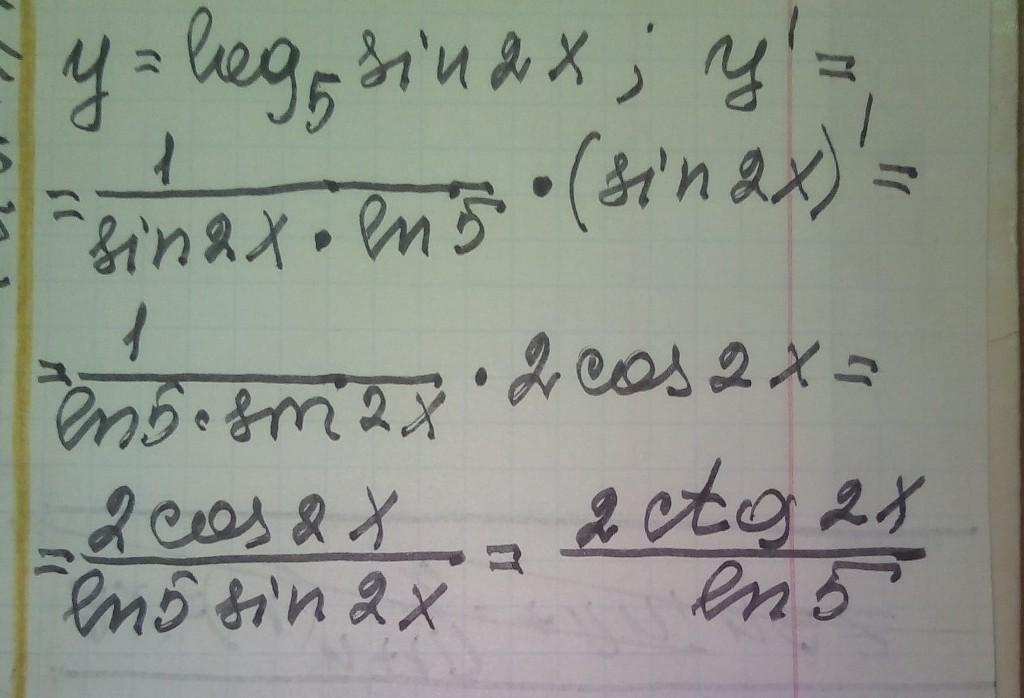 y = log₅ sin 2x ; y' =
= 1 / (sin 2x · ln 5) · (sin 2x)' =
= 1 / (ln 5 · sin 2x) · 2 cos 2x =
= 2 cos 2x / (ln 5 sin 2x) = 2 ctg 2x / ln 5